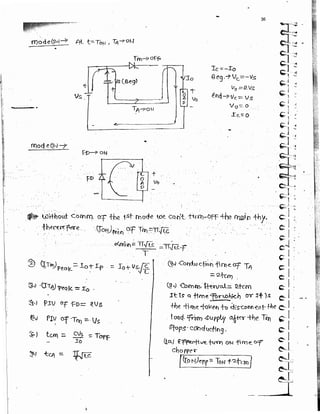 36
mode(3)→ At t=Ton, TA→ON
Tm→OFF
Ic=-Io
(Beg)
Io
Beg.→Vc=-Vs
Vo=2Vs
End→Vc=Vs
Vo=0
Ic=0
Vs
Vo
LOAD
TA→ON
mode(4)→
FD→ON
FD
LOAD
Vo
without comm. of the 1st mode we can't turn-off the main thy.
therefore. (Ton)min of Tm=π√LC
αmin = π√LC / T = π√LC.f
2) (ITm)peak = Io+Ip = Io+Vs√C/L
(ITA)peak = Io
PIV of FD= 2Vs
PIV of Tm = Vs
tcm = CVs/Io = TOFF
tcA = π/2 √LC
Conduction time of TA = 2tcm
Comm. Interval= 2tcm
It is a time or It is
the time taken to disconnect the
load from supply after the Tm
stops conducting.
Effective turn on time of
chopper
(TON)eff = TON+2tcm